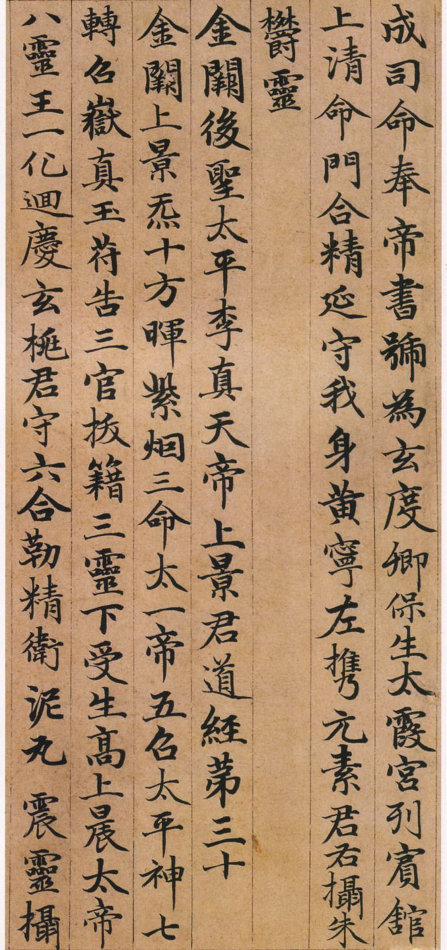 成司命奉帝書號為玄度卿保生太霞宮列賓舘
上清命門合精延守我身黃寧左携元素君右攝朱
欝靈
金闕後聖太平李真天帝上景君道經苐三十
金闕上景炁十方暉紫烟三命太一帝五召太平神七
轉召嶽真王苻告三官拔籍三靈下受生髙上晨太帝
八靈王一化迴慶玄桃君守六合勒精衛泥丸 震靈攝